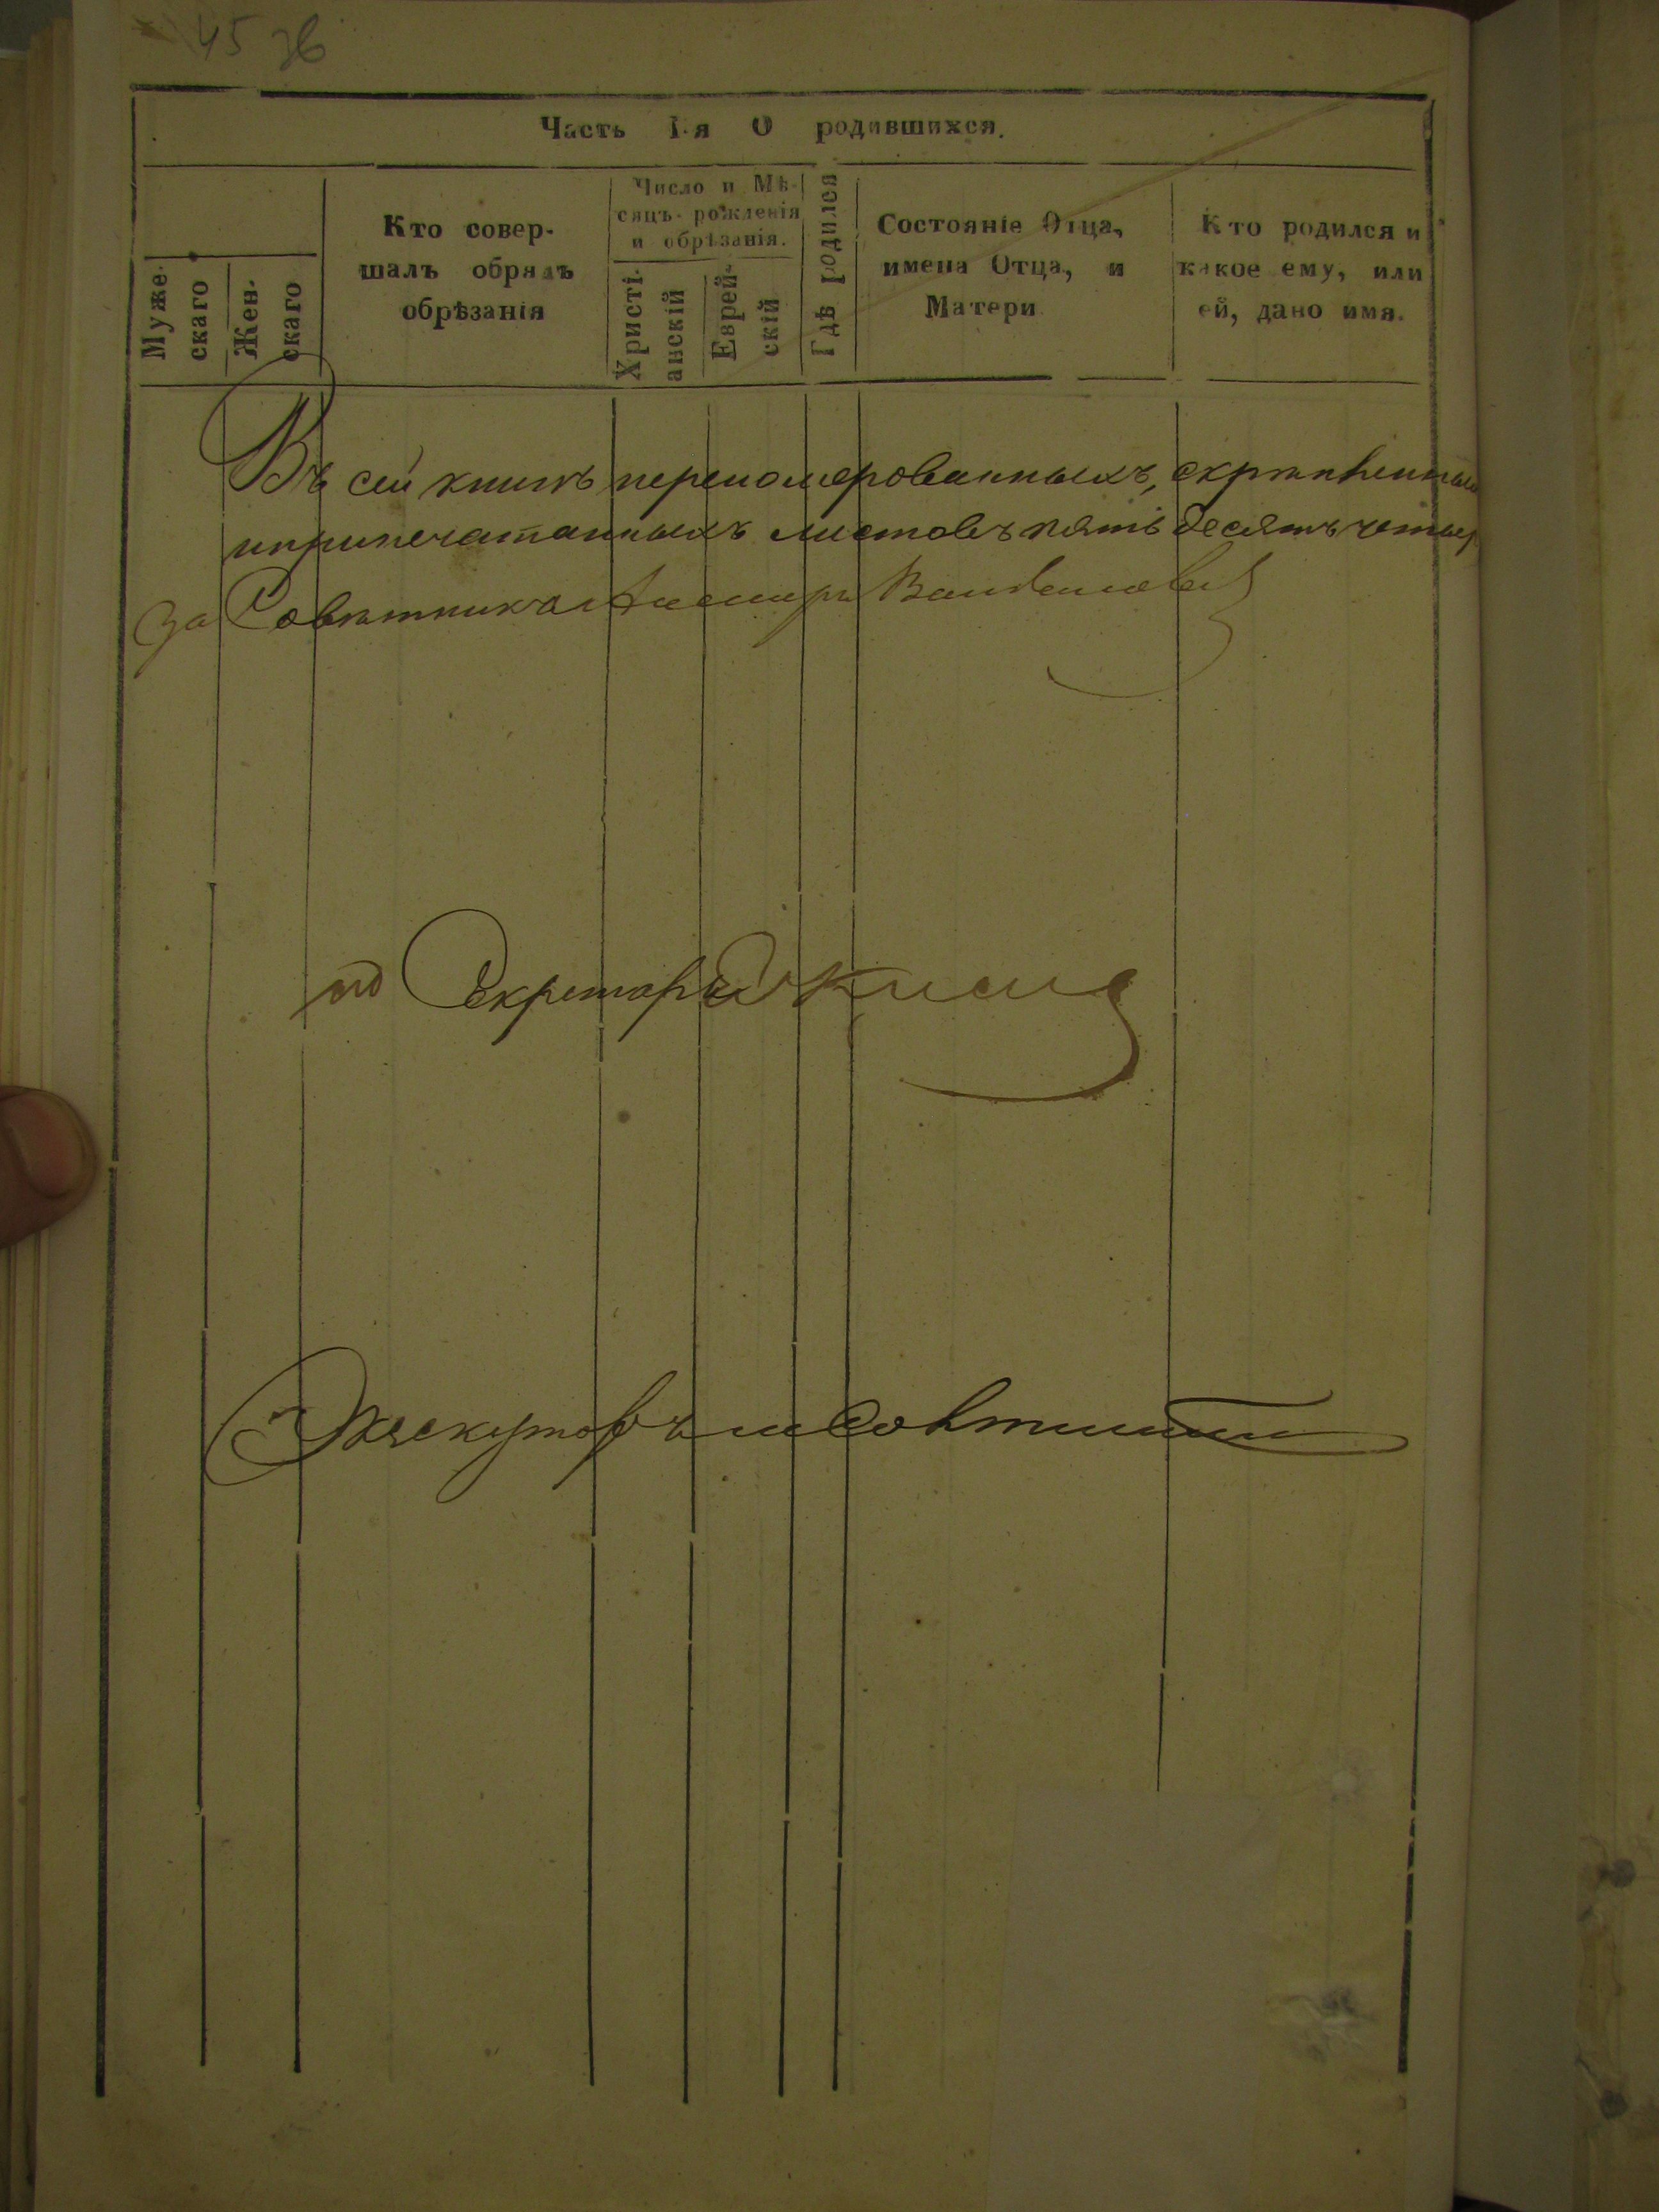 45 зв
Часть I-я О родившихся.
Муже-
скаго
Жен-
скаго
Кто совер-
шалъ обрядъ
обрѣзанія
Число и Мѣ-
сяцъ рожденія
и обрѣзанія.
Христі-
анскій
Еврей-
скій
Гдѣ родился
Состояніе Отца,
имена Отца, и
Матери
Кто родился и
какое ему, или
ей, дано имя.
Въ сей книгѣ перенолерованныхъ, скрѣпленныхъ
ипринечатанныхъ листовъ пять десятъ четыр
За Совѣтника Ассесоръ
по Секретарь
Экзекуторъ